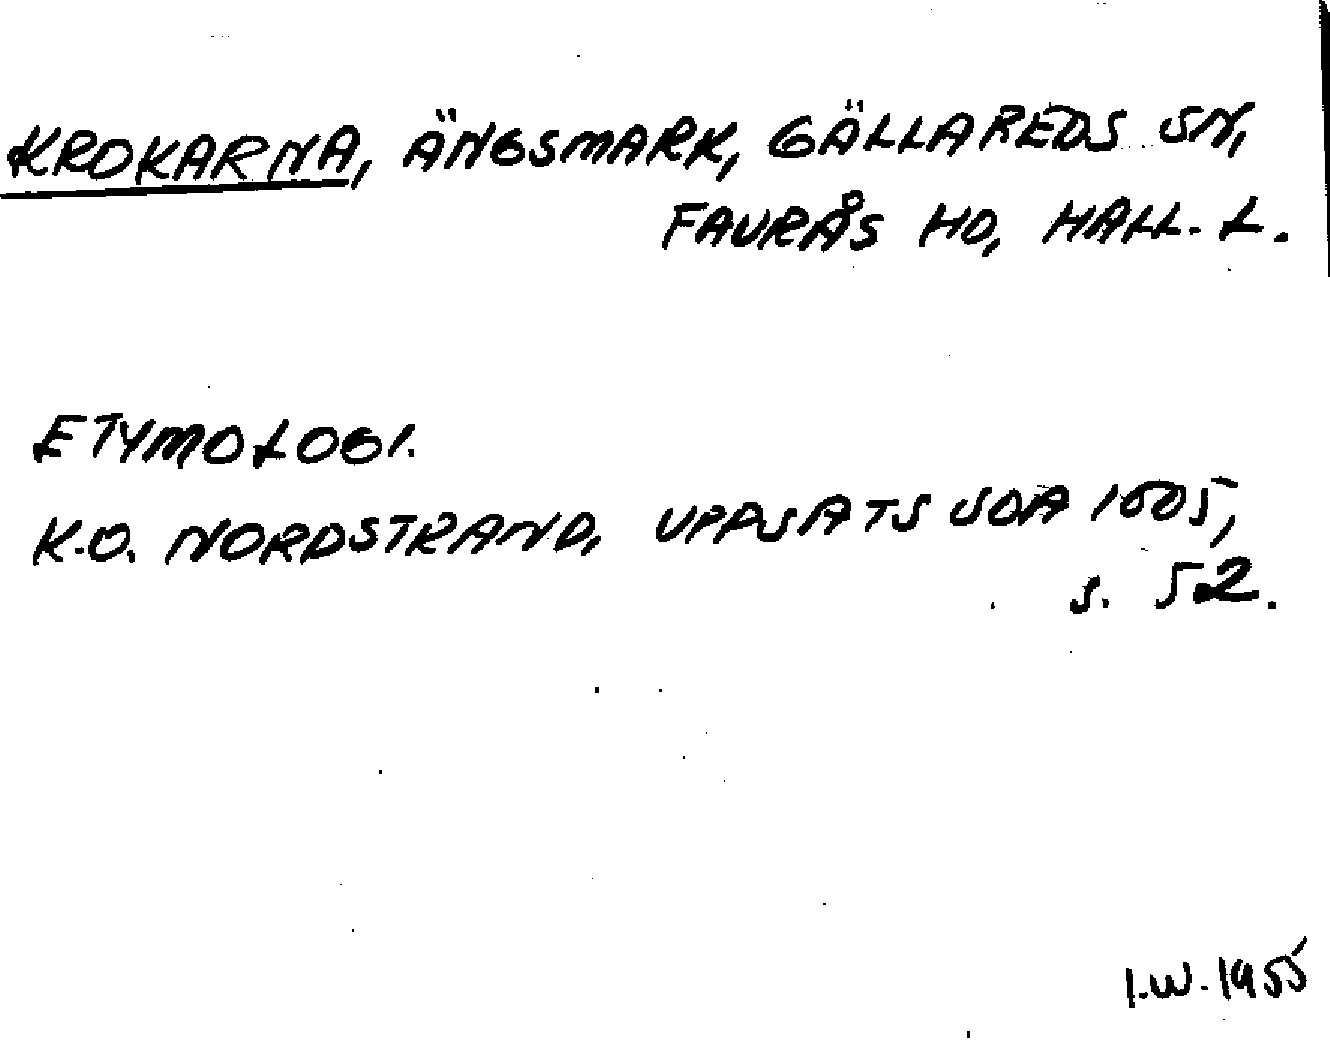 KROKARNA, ÄNGSMARK, GÄLLAREDS SN,
FAURÅS HD, HALL. L.
ETYMOLOGI.
K.O. NORDSTRAND, UPPSATS SOA 1605,
s. 52.
I.W. 1955